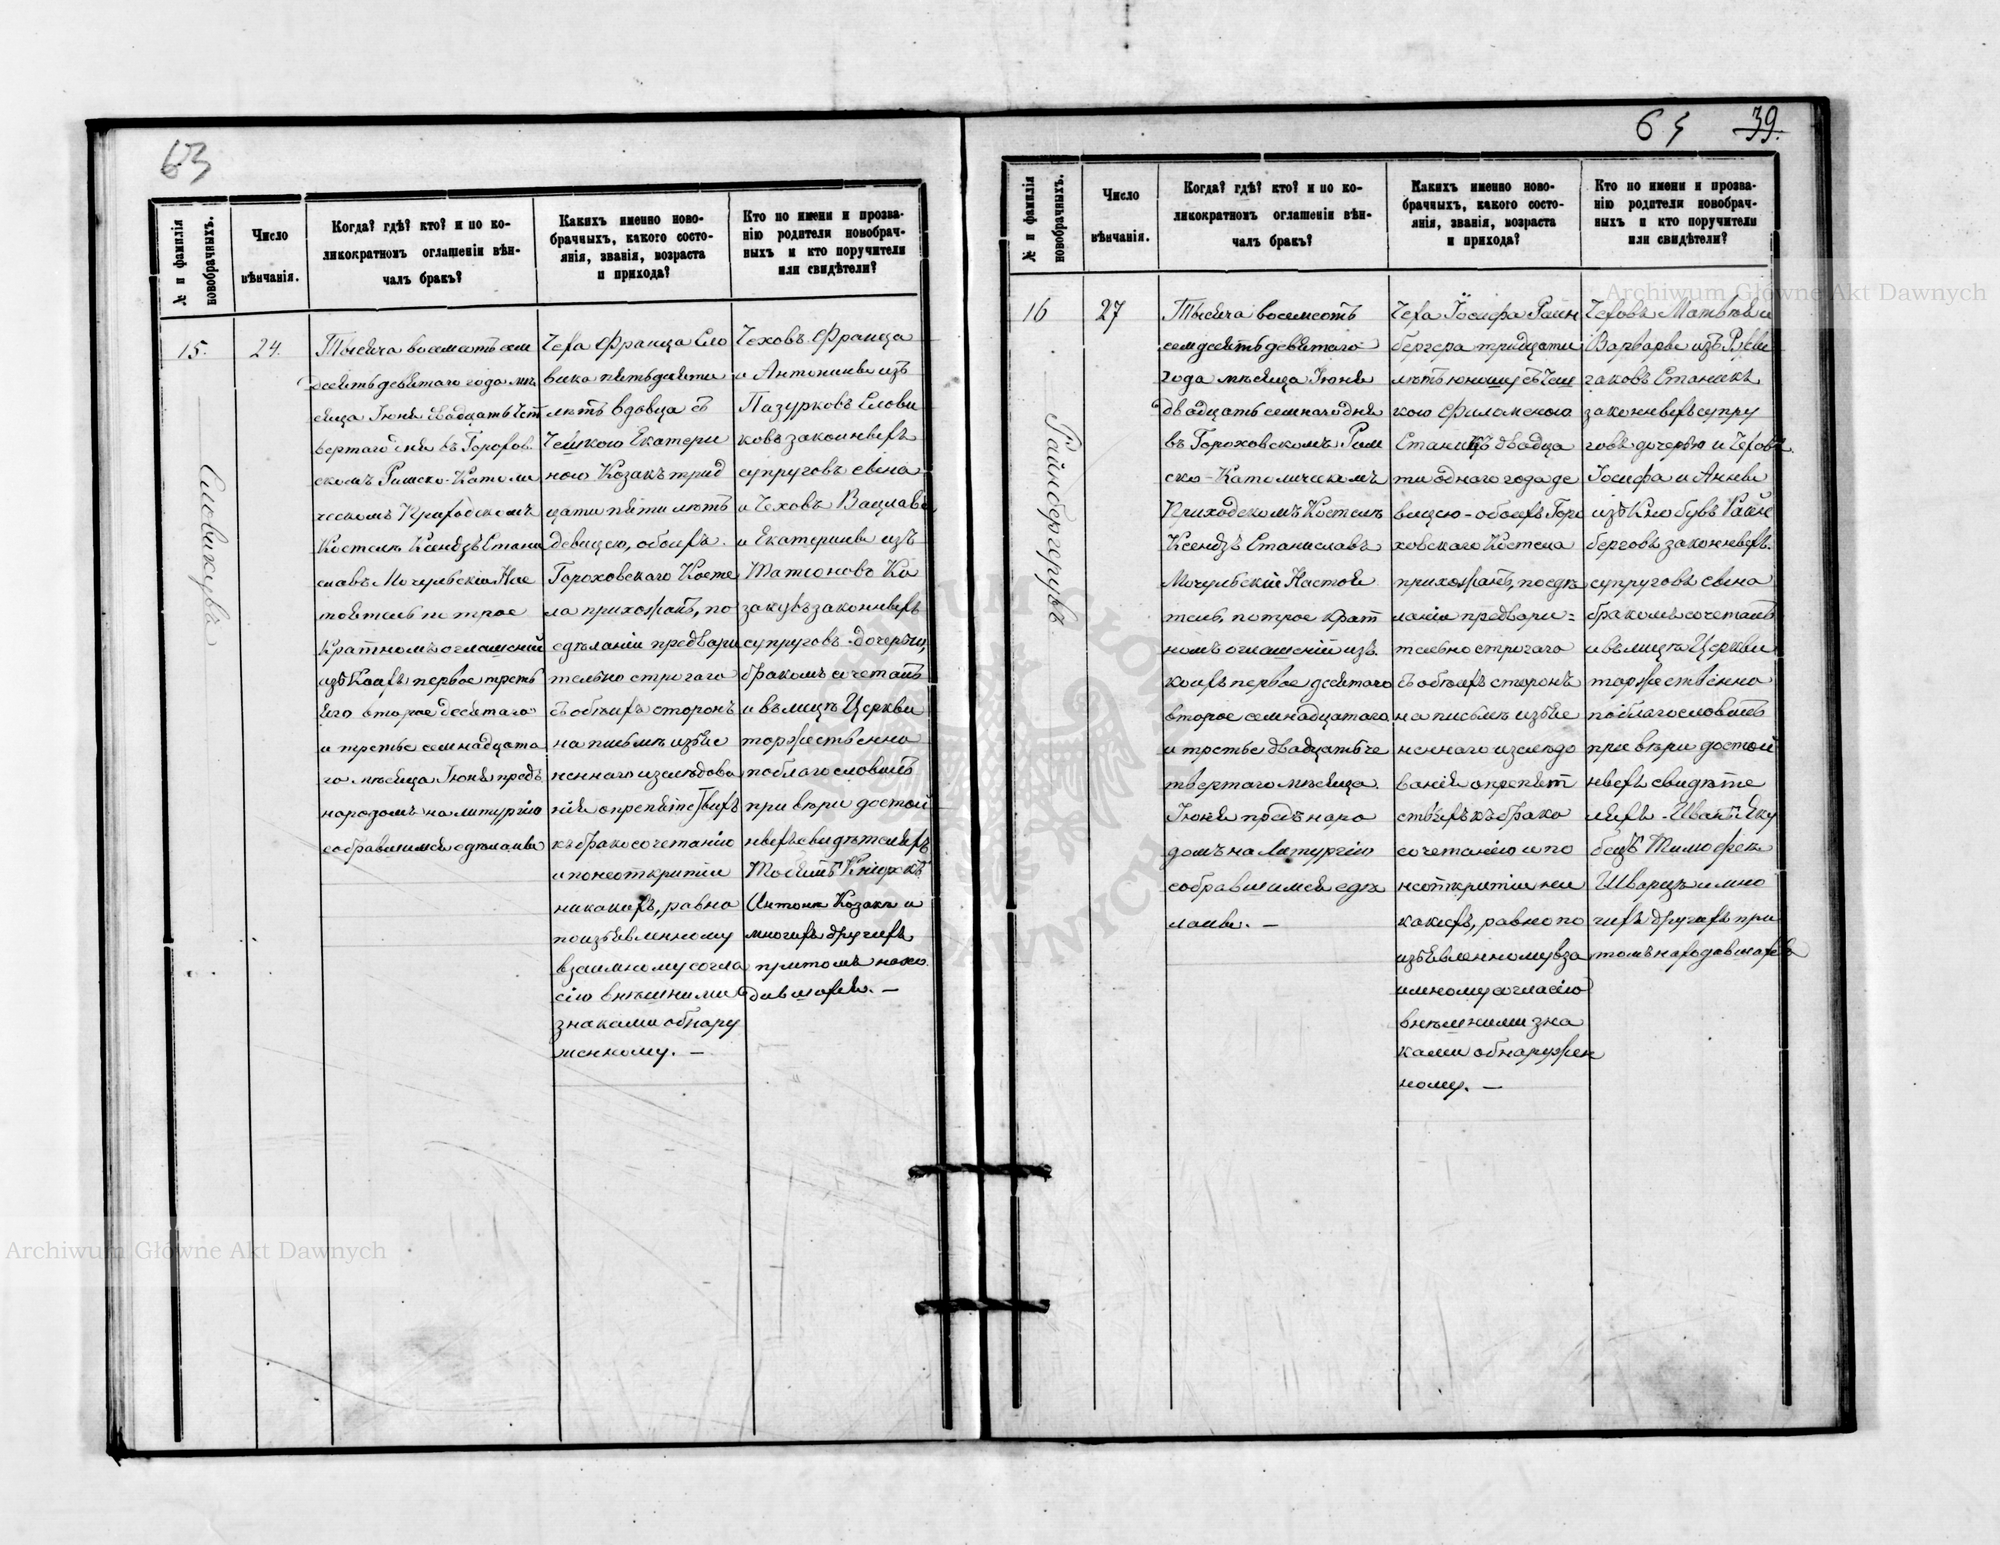 63
№ и фамилія
новобрачныхъ.
Число
вѣнчанія.
Когда? гдѣ? кто? и по ко-
ликократномъ оглашеніи вѣн-
чалъ бракъ?
Какихъ именно ново-
брачныхъ, какого состо-
янія, званія, возраста
и прихода?
Кто по имени и прозва-
нію родители новобрач-
ныхъ и кто поручители
или свидѣтели?
15.
Словикувъ
24.
Тысяча восемьсотъ сем
десятъ девятаго года мѣ
сяца Іюня двадцать чет
вертаго дня въ Горохов
скомъ Римско-Католи
ческомъ Приходскомъ
Костелѣ Ксендзъ Стани
славъ Мочульскій Нас
тоятель по трое
кратномъ оглашеній
изъ коихъ первое треть
яго второе десятаго
и третье семнадцата
го мѣсяца Іюня предъ
народомъ на литургію
собравшимся сдѣланы
Чеха Франца Сло
вика пятьдесяти
лѣтъ вдовца съ
Чешкою Екатери
ною Козакъ трид
цати пяти лѣтъ
девицею, обоихъ
Гороховскаго Косте
ла прихожанъ, по
сдѣланіи предвари
тельно строгаго
съ обѣихъ сторонъ
на письмѣ изъяс
неннаго изслѣдова
нія опрепятствіяхъ
къ бракосочетанію
и по неоткрытіи
никакихъ, равно
по изъявленному
взаимному согла
сію внѣшними
знаками обнару
женному. —
Чеховъ Франца
и Антонины изъ
Пазурковъ Слови
ковъ законныхъ
супруговъ сына
и Чеховъ Вацлава
и Екатерины изъ
Матіоновъ Ко
закувъ законныхъ
супруговъ дочерью,
бракомъ сочеталъ
и въ лицѣ Церкви
торжественно
поблагословилъ
при вѣри достой
ныхъ свидѣтеляхъ
Антона Козака и
многихъ другихъ
притомъ нахо
дившихся. —
65 39.
№ и фамилія
новобрачныхъ.
Число
вѣнчанія.
Когда? гдѣ? кто? и по ко-
ликократномъ оглашеніи вѣн-
чалъ бракъ?
Какихъ именно ново-
брачныхъ, какого состо-
янія, званія, возраста
и прихода?
Кто по имени и прозва-
нію родители новобрач-
ныхъ и кто поручители
или свидѣтели?
16
Райнбергерувъ
27
Тысяча восемсотъ
семдесятъ девятаго
года мѣсяца Іюня
двадцать семаго дня
въ Гороховскомъ Рим
ско-Католическомъ
Приходскомъ Костелѣ
Ксендзъ Станиславъ
Мочульскій Настоя
тель, по трое крат
номъ оглашеній изъ
коихъ первое десятаго
второе семнадцатаго
и третье двадцать че
твертаго мѣсяца
Іюня предъ наро
домъ на Литургію
собравшимся сдѣ
ланы. —
Чеха Іосифа Раин
бергера тридцати
лѣтъ юношу съ Чеш
кою Филоменою
Станикъ двадца
ти одного года де
вицею - обоихъ Горо
ховскаго Костела
прихожанъ, по сдѣ
ланіи предвари-
тельно строгаго
съ обѣихъ сторонъ
на письмѣ изъяс
неннаго изслѣдо
ванія опрепят
ствіяхъ къ брако
сочетанію и по
неоткрытіи ни
какихъ, равно по
изъявленному вза
имному согласію
внѣшними зна
ками обнаружен
ному. —
Чеховъ Матвѣя и
Варвары изъ
Станикъ
законныхъ супру
говъ дочерью и Чеховъ
Іосифа и Анны
изъ Клобувъ Райн
берговъ законныхъ
супруговъ сына
бракомъ сочеталъ
и въ лицѣ Церкви
торжественно
поблагословилъ
при вѣри достой
ныхъ свидѣте
ляхъ - Иванѣ Яку
бецъ Тимофея
Шварцъ и мно
гихъ другихъ при
томъ находившихся
Archiwum Główne Akt Dawnych
Archiwum Główne Akt Dawnych